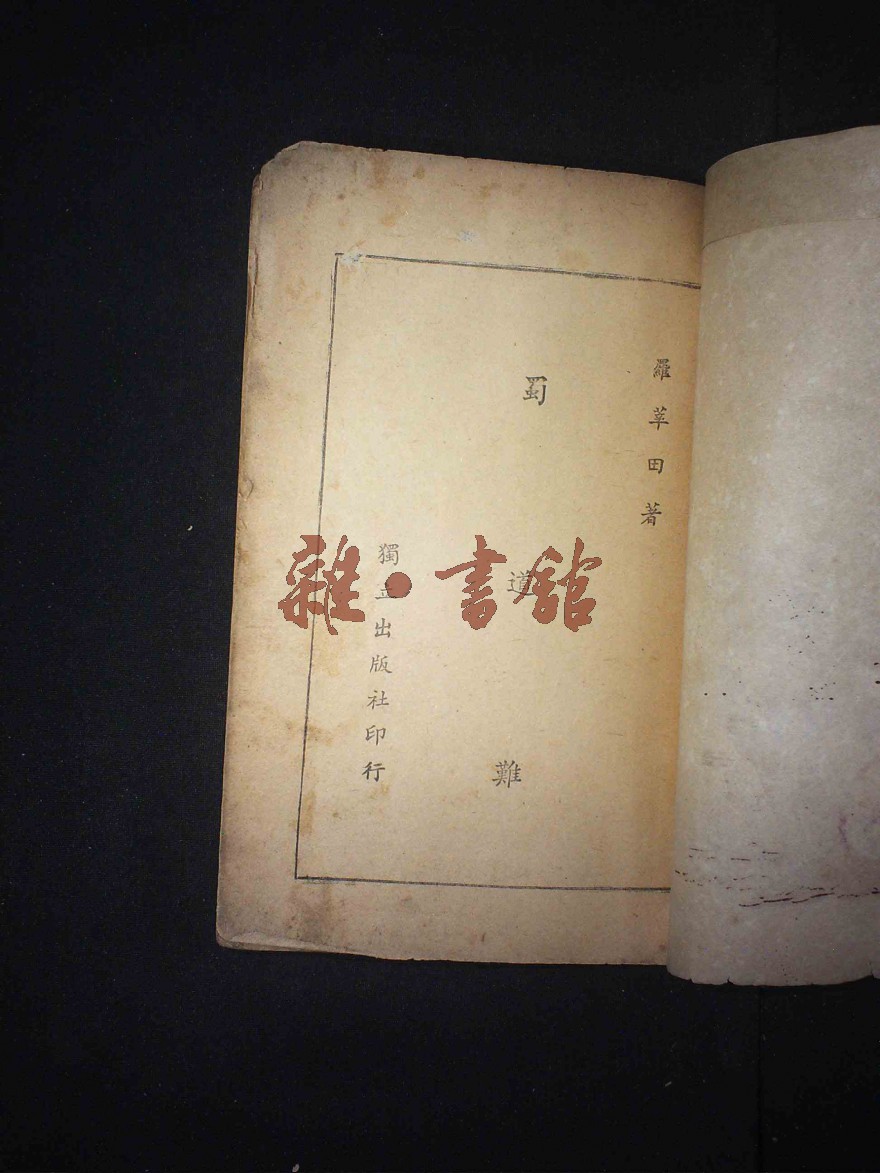 羅莘田著
蜀道難
獨立出版社印行
雜·書館